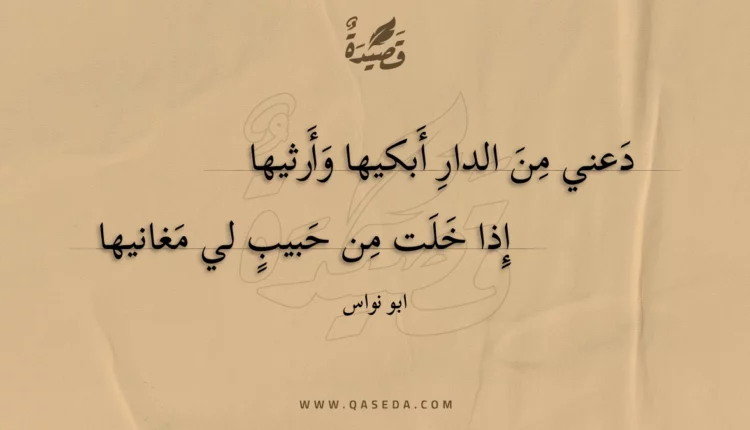 قَصِيدَةٌ
دَعني مِنَ الدارِ أَبكيها وَأَرثيها
إِذا خَلَت مِن حَبيبٍ لي مَغانيها
ابو نواس
WWW.QASEDA.COM